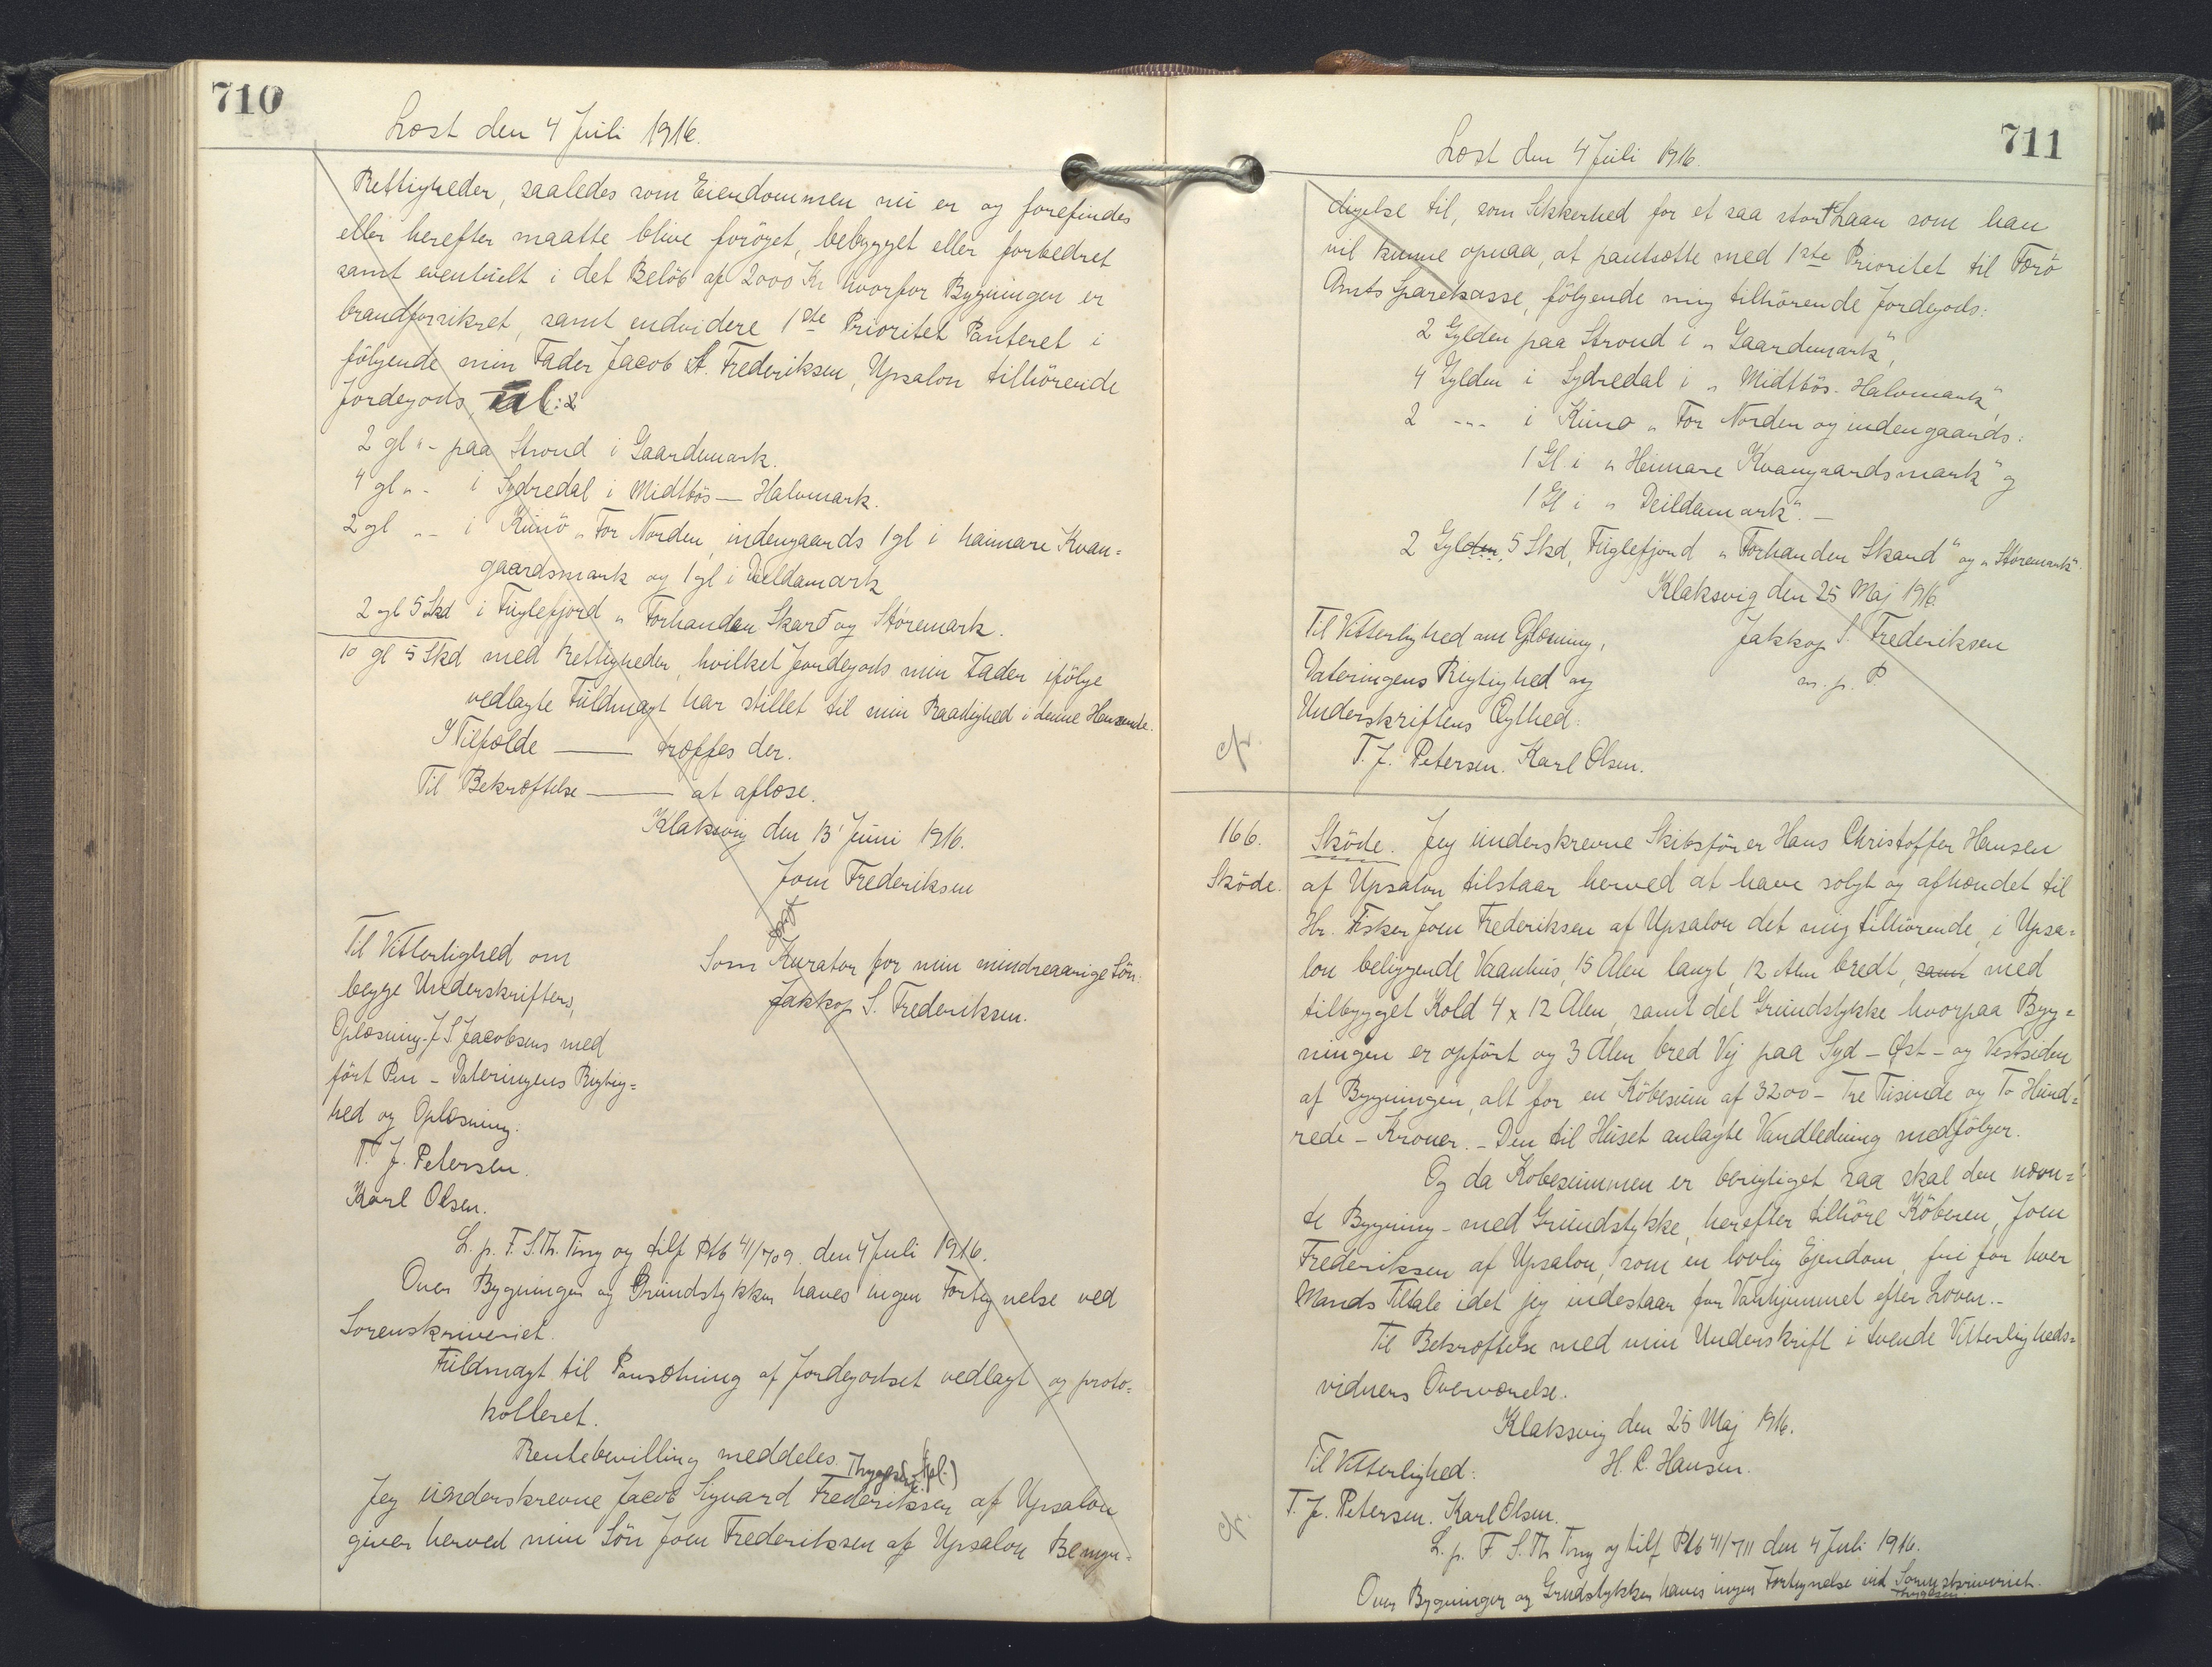 710
Læst den 4 Juli 1916.
Rettigheder, saaledes som Eiendommen nu er og forefindes
eller herefter maatte blive forøget, bebygget eller forbedret
samt eventuelt i det Beløb af 2000 Kr hvorfor Bygningen er
brandforsikret, samt endvidere 1ste Prioritet Panteret i
følgende min Fader Jacob S. Frederiksen, Upsalon tilhørende
Jordegods,
2 gl "- paa Strond i Gaardemark.
4 gl "- i Sydredal i Midtbös - Halvmark.
2 gl "- i Kunö "For Norden, indengaards 1 gl i haimare Kvan=
gaardsmark og 1 gl i Deildamark
2 gl 5 Skd i Fuglefjord "Forhanden Skard og Störemark.
10 gl 5 Skd med Rettigheder, hvilket Jordegods min Fader ifølge
vedlagte Fuldmagt har stillet til min Raadighed i denne Henseende.
I Tilfælde ——— træffes der.
Til Bekræftelse ——— at aflæse.
Klaksvig den 13' Juni 1916.
Joen Frederiksen
Til Vitterlighed om
begge Underskrifters,
Oplæsning J S Jacobsens med
ført Pen - Dateringens Rigtig=
hed og Oplæsning:
T. J. Petersen.
Karl Olsen.
Som Kurator for min mindreaarige Søn:
Jakkop S. Frederiksen.
L. p. F. S. Th. Ting og tilf Ptb 41/709. den 4 Juli 1916.
Over Bygningen og Grundstykken haves ingen Fortegnelse ved
Sorenskriveriet.
Fuldmagt til Pansætning af Jordegodset vedlagt og proto=
kolleret.
Rentebevilling meddeles.
Jeg underskrevne Jacob Sigvard Frederiksen af Upsalon
giver herved min Søn Joen Frederiksen af Upsalon Bemyn=
711
Læst den 4 Juli 1916.
digelse til, som Sikkerhed for et saa stort Laan som han
vil kunne opnaa, at pantsætte med 1ste Prioritet til Færö
Amts Sparekasse, følgende mig tilhörende Jordegods:
2 Gylden paa Strond i "Gaardemark",
4 Gylden i Sydredal i "Midtbös-Halvmark",
2 --- i Kunö "For Norden og indengaards:
1 Gl i "Heimare Kvangaardsmark" og
1 Gl i "Deildamark". -
2 Gylden, 5 Skd, Fuglefjord "Forhanden Skard" og "Störemark".
Klaksvig den 25 Maj 1916.
Jakkop S. Frederiksen
m. p. P.
Til Vitterlighed om Oplæsning,
Dateringens Rigtighed og
Underskriftens Ægthed:
T. J. Petersen. Karl Olsen.
cfr.
166.
Sköde.
Sköde. Jeg underskrevne Skibsfører Hans Christoffer Hansen
af Upsalon tilstaar herved at have solgt og afhændet til
Hr. Fisker Joen Frederiksen af Upsalon det mig tilhørende, i Upsa=
lon beliggende Vaanhus, 15 Alen langt, 12 Alen bredt, samt med
tilbygget Kold 4 x 12 Alen, samt det Grundstykke hvorpaa Byg=
ningen er opført og 3 Alen bred Vej paa Syd - Øst - og Vestsiden
af Bygningen, alt for en Købesum af 3200 - Tre Tusinde og To Hund=
rede - Kroner. - Den til Huset anlagte Vandledning medfølger.
Og da Købesummen er berigtiget saa skal den nævn=
te Bygning - med Grundstykke, herefter tilhöre Köberen, Joen
Frederiksen af Upsalon, som en lovlig Ejendom, fri for hver
Mands Tiltale idet jeg indestaar for Vanhjemmel efter Loven. -
Til Bekræftelse med min Underskrift i tvende Vitterligheds=
vidners Overværelse.
Klaksvig den 25 Maj 1916.
H. C. Hansen.
Til Vitterlighed:
T. J. Petersen. Karl Olsen.
cfr.
L. p. F. S. Th Ting og tilf Ptb 41/711 den 4 Juli 1916.
Over Bygningen og Grundstykken haves ingen Fortegnelse ved Sorenskriveriet.
Thygesen